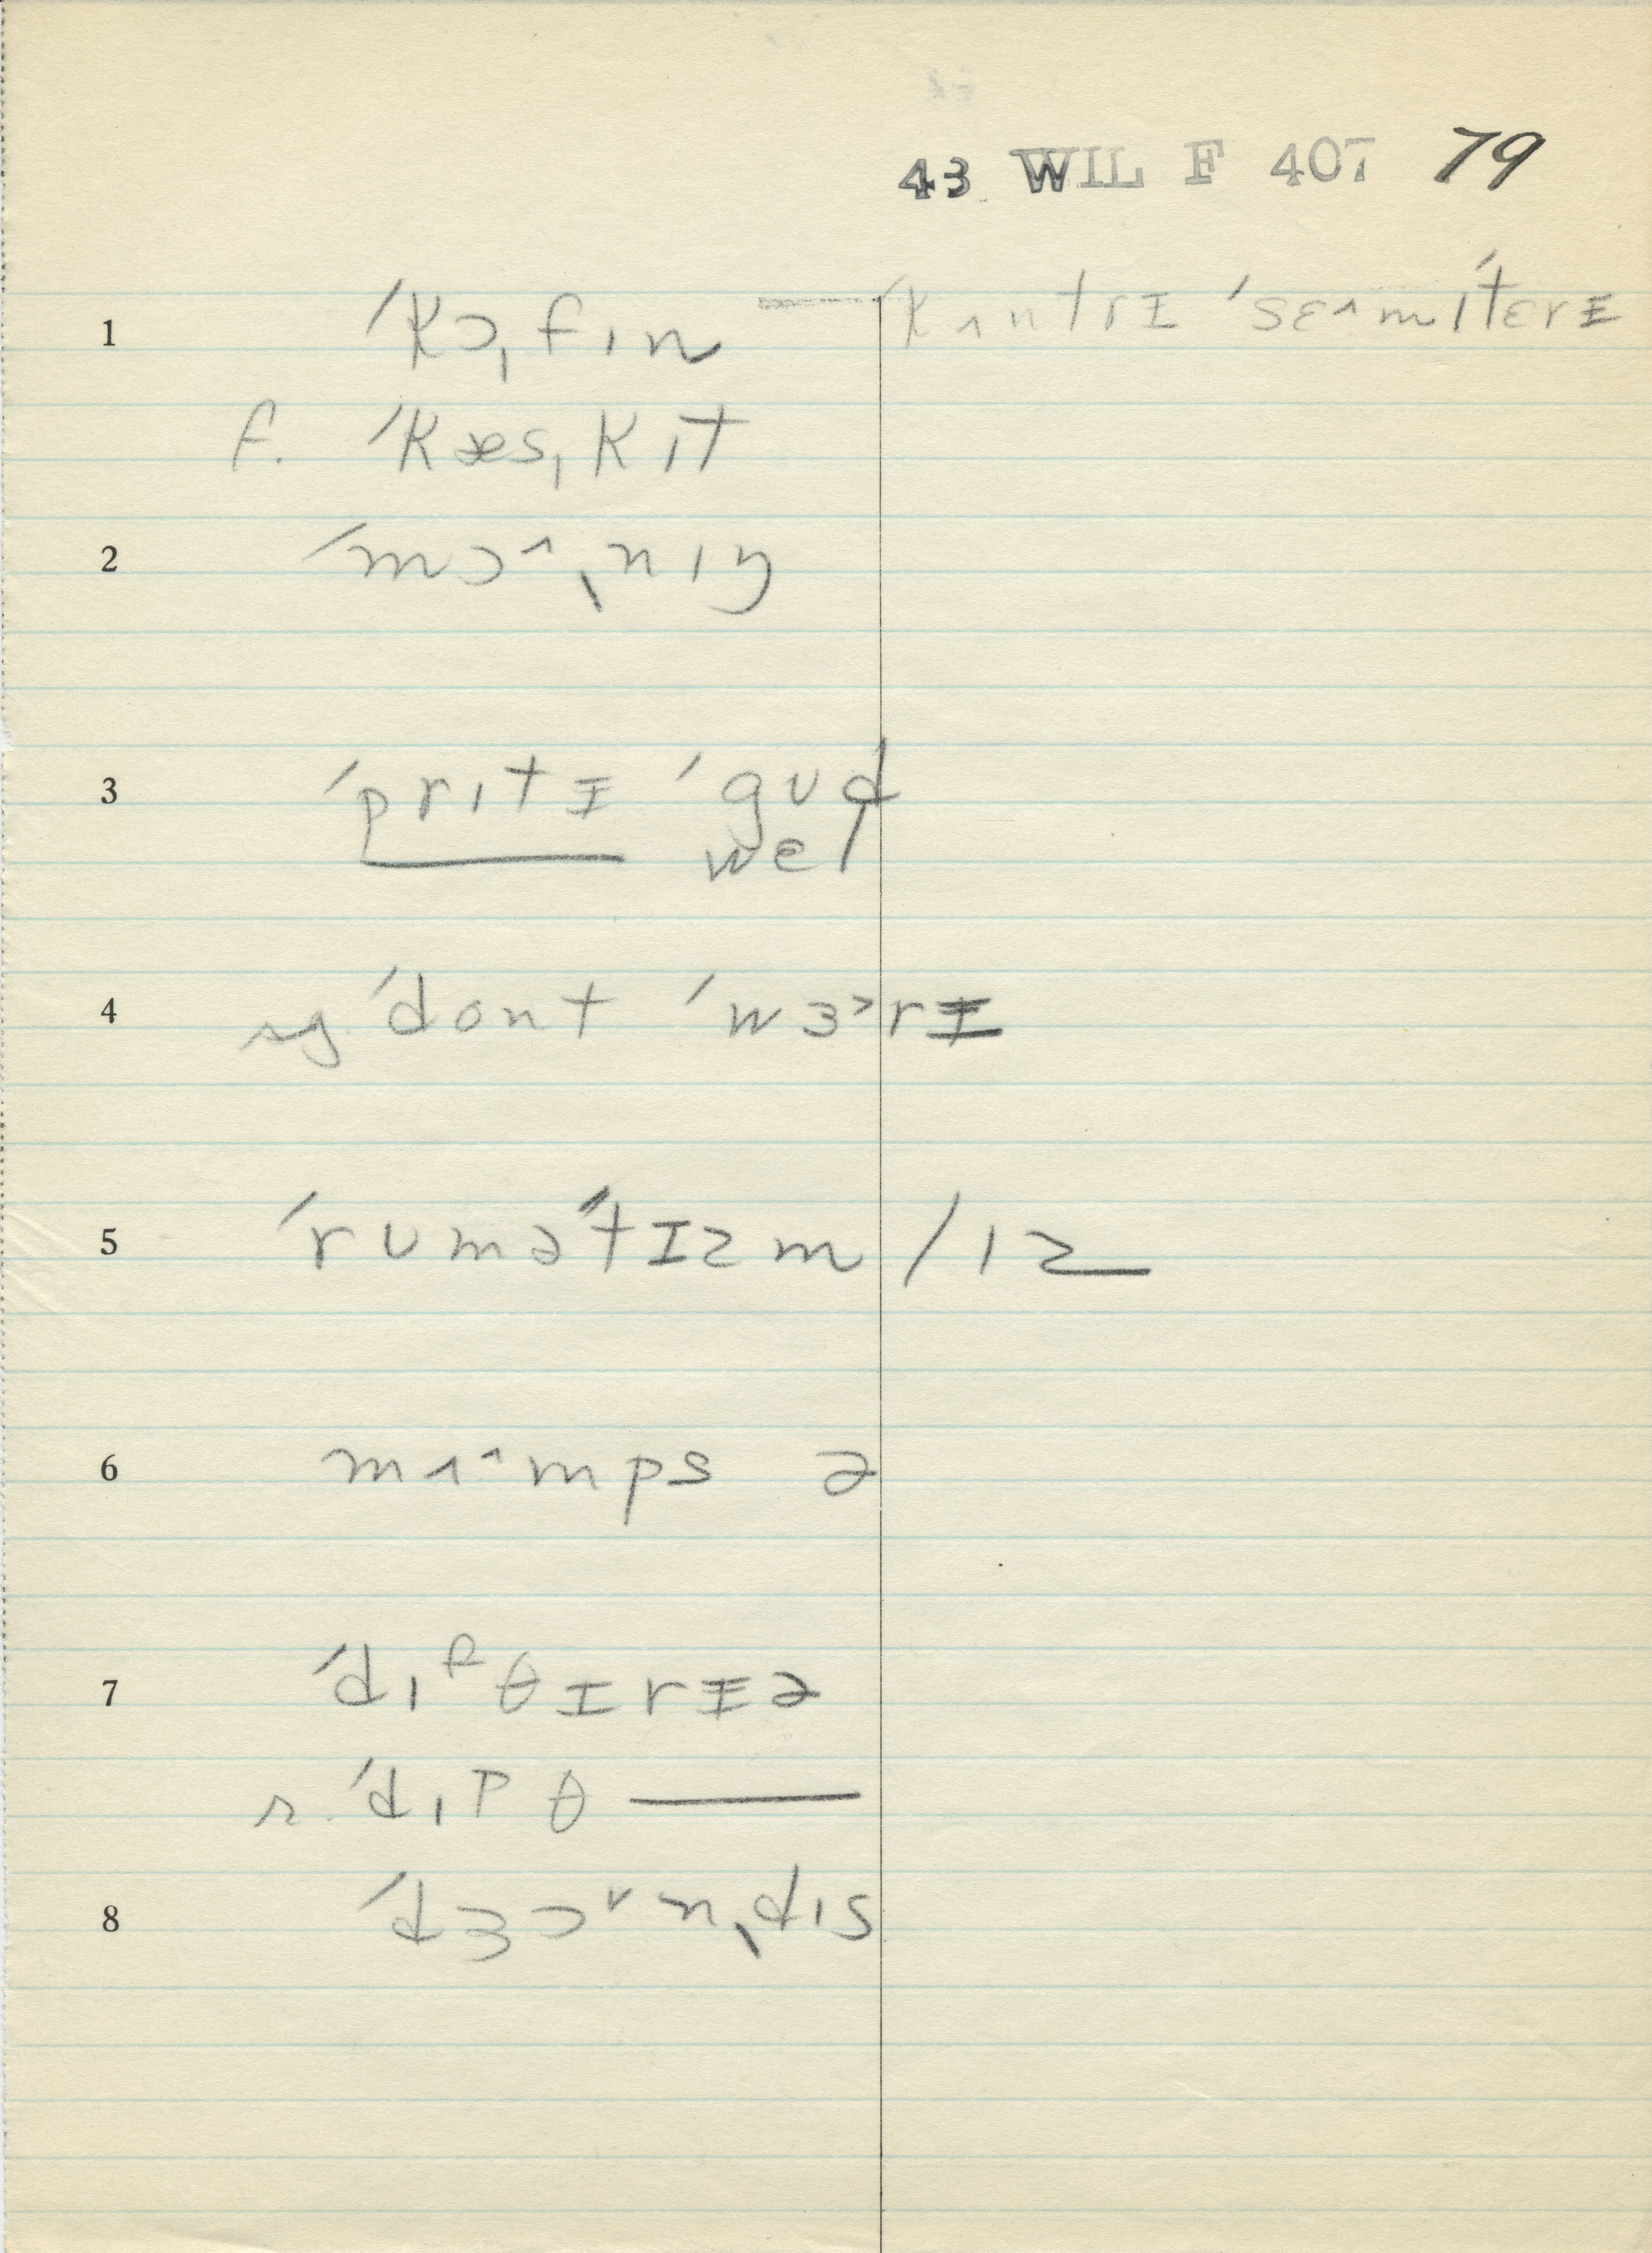 43 WIL F 407 79
1 ˈkɔˌfɪn — ˈkʌntrɪ̵ ˈsɛ^mɪˈtɛrɪ̵
f. ˈkæsˌkɪt
2 ˈmɔ^ˌnɪŋ
3 ˈprɪtɪ̵ ˈgʊd
wel
4 sg. ˈdont ˈwɜ˃rɪ̵
5 ˈrʊməˈtɪzm / ɪz
6 mʌ^mps ə
7 ˈdɪᶠθɪrɪ̵ə
r. ˈdɪpθ —
8 ˈdʒɔ˅nˌdɪs